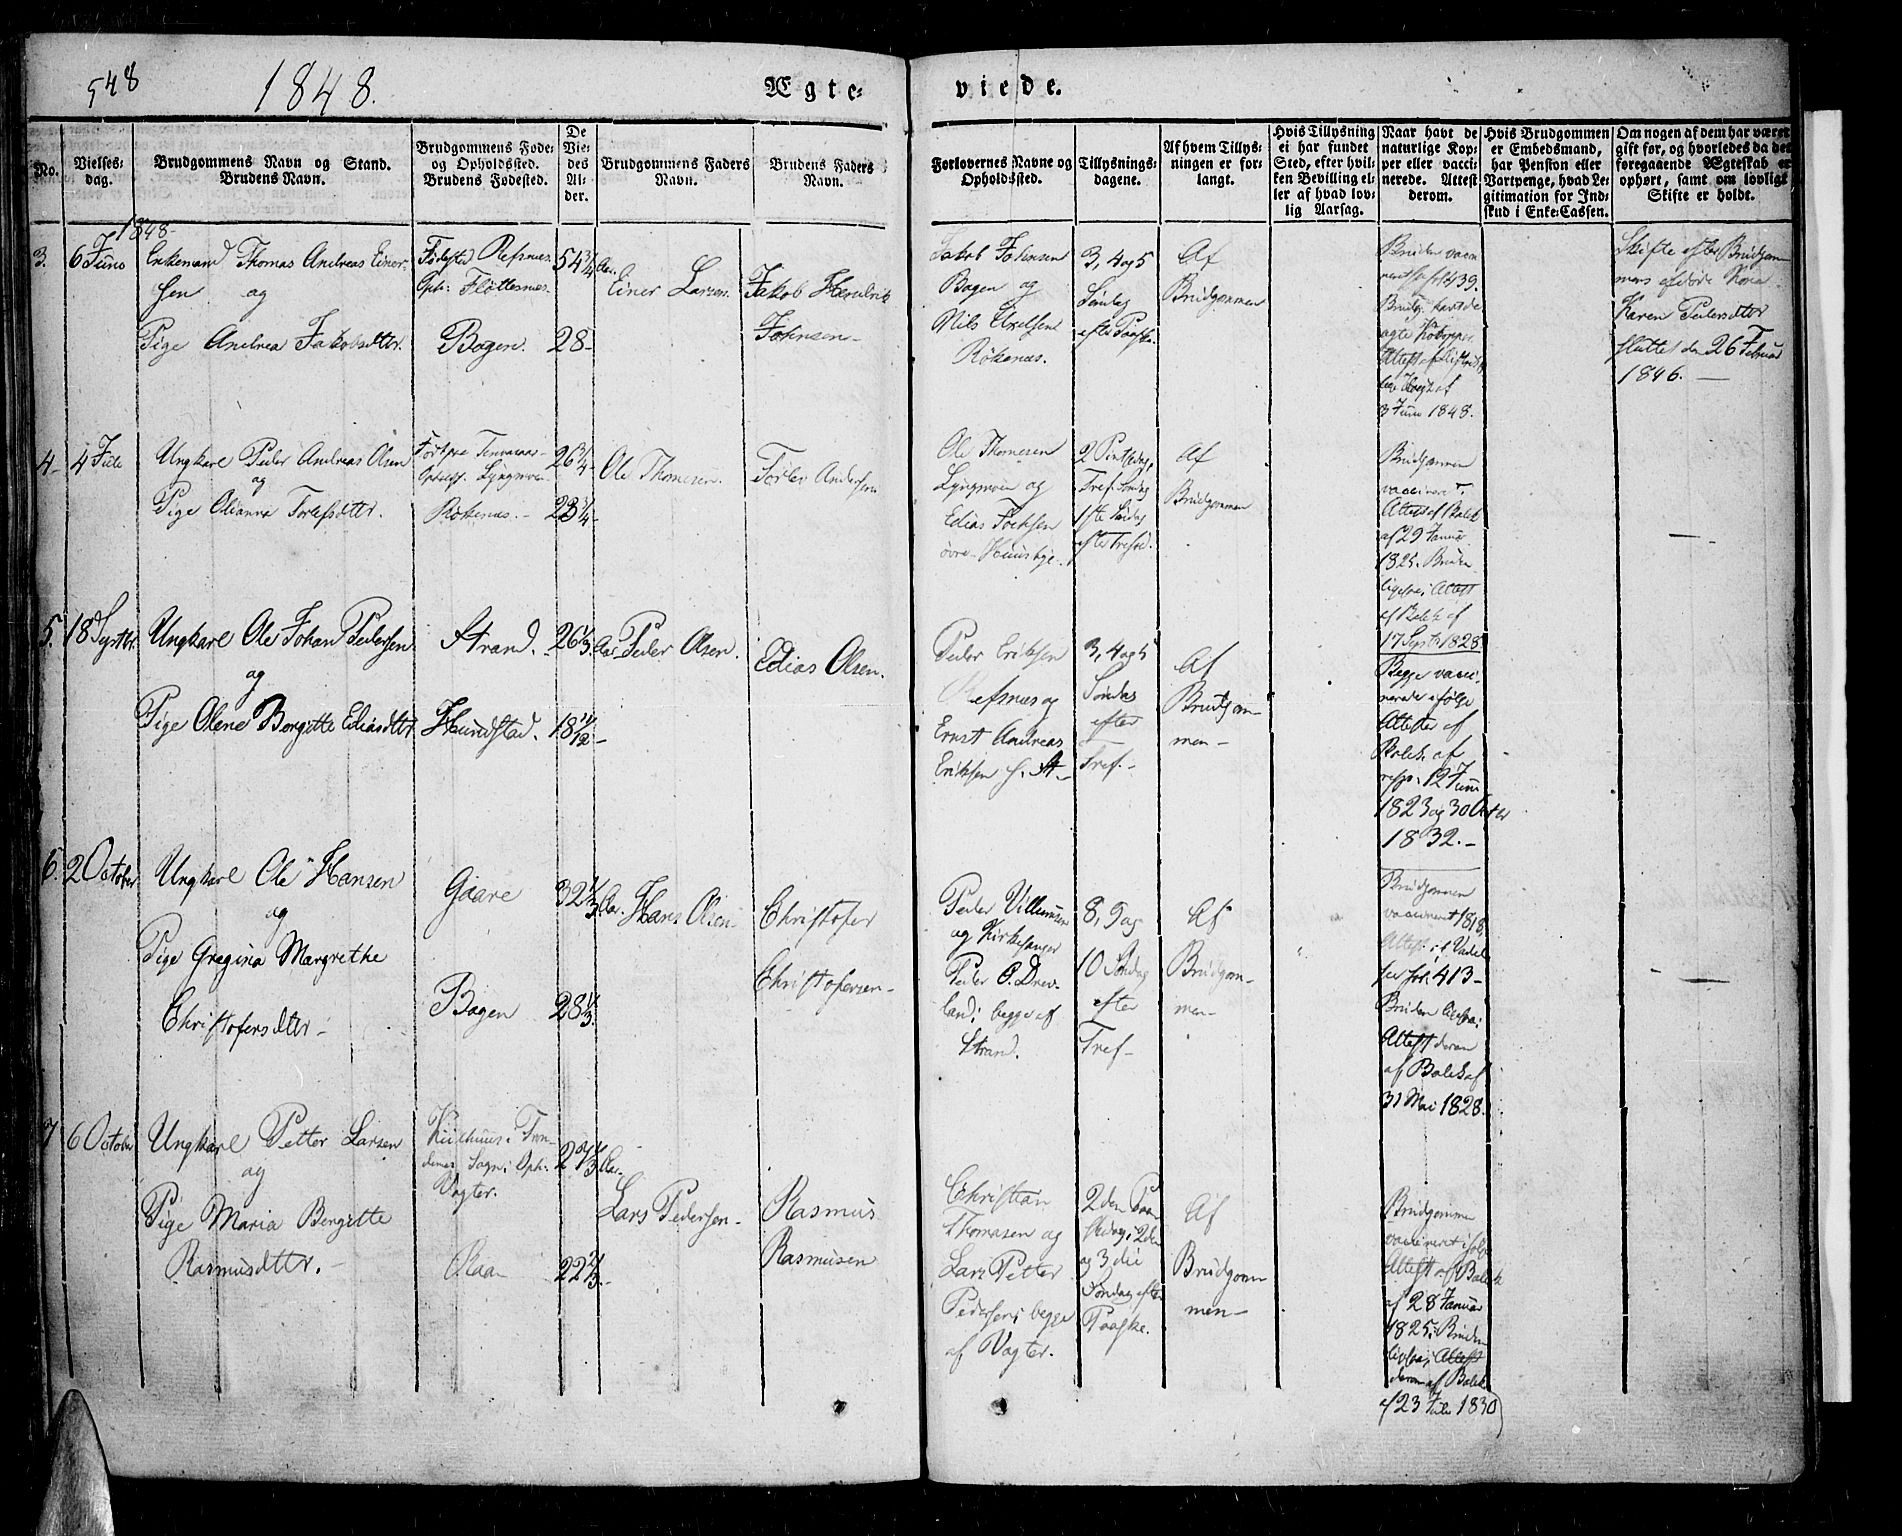 548
1848.
Ægte-
viede.
No.
Vielses-
dag.
Brudgommens Navn og Stand.
Brudens Navn.
Brudgommens Føde-
og Opholdssted.
Brudens Fødested.
De
Vie-
des
Al-
der.
Brudgommens Faders
Navn.
Brudens Faders
Navn.
Forlovernes Navne og
Opholdssted.
Tillysnings-
dagene.
Af hvem Tillys-
ningen er for-
langt.
Hvis Tillysning
ei har fundet
Sted, efter hvil-
ken Bevilling el-
ler af hvad lov-
lig Aarsag.
Naar havt de
naturlige Kop-
per eller vacci-
nerede. Attest
derom.
Hvis Brudgommen
er Embedsmand,
har Pension eller
Vartpenge, hvad Le-
gitimation for Ind-
skud i Enke-Cassen.
Om nogen af dem har været
gift før, og hvorledes da det
foregaaende Ægteskab er
ophørt, samt om lovligt
Skifte er holdt.
1848-
3. 6 Juno
Enkemand Thomas Andreas Einer-
sen og
Pige Andrea Jakobsdtter.
Födested Refsnes.
Oph: Flöttesnes.
Bogen.
54 3/4 Aar.
28-
Einer Larsen.
Jakob Hendrik
Johnsen-
Jakob Johnsen
Bogen og
Nils Axelsen
Rökenes.
3, 4 og 5
Söndag
efter Paaske.
Af
Brudgommen
Bruden vacci-
neret
Brudg. havt de
ægte Kokopper
3 Juni 1848.
Skifte efter Brudgom-
mens afdöde Kone
Karen Pedersdtter
sluttet den 26 Februar
1846.
4- 4 Jule
Ungkarl Peder Andreas Olsen
og
Pige Olianna Torlefsdtter.
Lyngmoen
Rökenes.-
26 3/4-
23 1/4-
Ole Thomesen.
Torlev Andersen
Ole Thomesen
Lyngmoen og
Edias Tocksen
övre- Hunstege.
2 Pintsedag,
Tref. Söndag
1ste Söndag
efter Trefold.
Af
Brudgommen
Brudgommen
vaccineret.
Attest af Balck
af 29 Januar
1825. Bruden
ligesaa; Attest
af Balck af
17 Septbr 1828.
5. 18 Septbr.
Ungkarl Ole Johan Pedersen
og
Pige Olene Bergitte Ediasdtter
Strand.
Hundstad.
26 1/3 Aar
18 11/12-
Peder Olsen.
Edias Olsen.
Peder Eriksen
Refsnes og
Ernst Andreas
Eriksen
3, 4 og 5
Söndag
efter
Tref.-
Af
Brudgom-
men-
Begge vacci-
nerede ifölge
Attester af
Balck af
resp. 12 Juni
1823 og 30 Octbr
1832.-
6. 2 October
Ungkarl Ole Hansen
og
Pige Gregina Margrethe
Christofersdtter-
Gaare
Bogen
32 1/3 Aar.
28 1/3.
Hans Olsen
Christofer
Christofersen-
Peder Villumsen
og Kirkesanger
Peder O. Drev-
land; begge af
Strand.
8, 9 og
10 Söndag
efter
Tref-
Af
Brudgom-
men-
Brudgommen
vaccineret 1818,
413-
Bruden ligesaa;
Attest derom
af Balck af
31 Mai 1828.
7 6 October
Ungkarl Petter Larsen
og
Pige Maria Bergitte
Rasmusdtter.
Vagter.
Aar.
22 1/3.
Lars Pedersen-
Rasmus
Rasmusen
Christian
Thomasen og
Lars Petter
Pedersen; begge
af Vagter.
2den Paa-
skedag; 2den
og 3die
Söndag efter
Paaske.
Af
Brudgom-
men-
Brudgommen
vaccineret ifölge
Attest af Balck
af 28 Januar
1825; Bruden
ligesaa; Attest
derom af Balck
af 23 Jule 1830